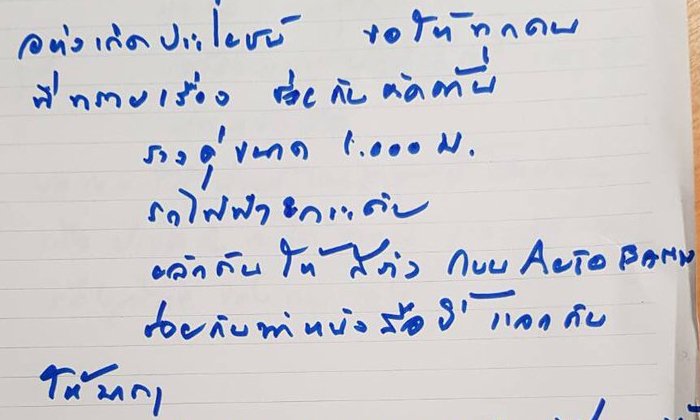 อย่างเกิดประโยชน์ ขอให้ทุกคน
ที่ทราบเรื่อง ช่วยกันคัดค้าน
รางคู่ขนาด 1.000 ม.
รถไฟฟ้ายกระดับ
ผลักดันให้สร้าง ถนน AUTO BAHN
ช่วยกันทำหนังสือนี้ แจกกัน
ให้มากๆ